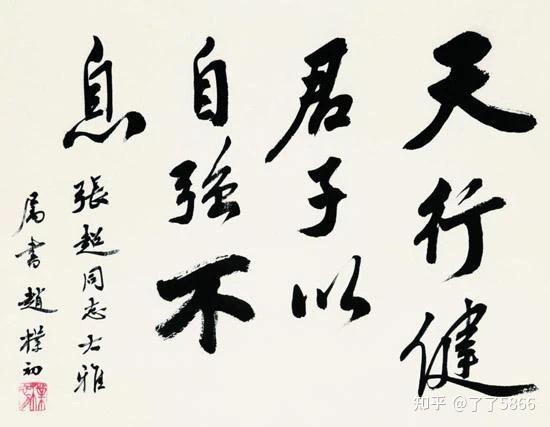 天行健
君子以
自強不
息
張超同志大雅
属書趙樸初
知乎 @了了5866